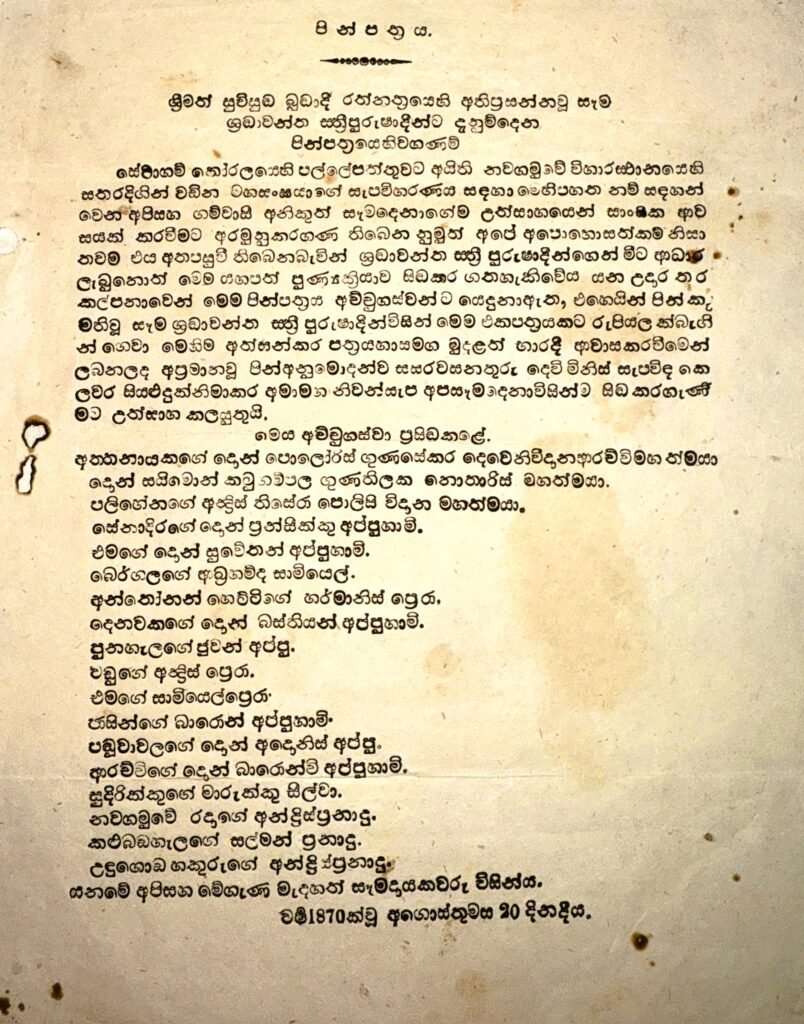 පින්පත්‍රය.
ශ්‍රීමත් සුවිසුඬ බුඩාදී රත්නත්‍රයෙහි අතිප්‍රසන්නවූ සෑම
ශ්‍රඬාවන්ත ස්ත්‍රීපුරුෂාදීන්ට දැනුම්දෙන
පින්පත්‍රයෙහිවගණම්
හේවාගම් කෝරලයෙහි පල්ලේපත්තුවට අයිති නවගමුවේ විහාරස්ථානයෙහි
සතරදිගින් වඩින මහසංඝයාගේ සැපවිහරණය සඳහා මෙහිපහත නම් සඳහන්
වෙන අපිසහ ගම්වාසි අනිකුත් සෑමදෙනාගේම උත්සාහයෙන් සාංඝික ආවා
සයක් කරවීමට අරමුනුකරගණ තිබෙන නුමුත් අපේ අපොහොසත්කම නිසා
තවම එය අතපසුවී තිබෙනබැවින් ශ්‍රඬාවන්ත ස්ත්‍රී පුරුෂාදීන්ගෙන් මීට ආධාර
ලැබුනොත් මෙම යහපත් පුණ්‍යක්‍රියාව සිඬකර ගතහැකිවේය යන උදාර තර
කල්පනාවෙන් මෙම පින්පත්‍රය අච්චුගස්වන්ට යෙදුනාඇත, එහෙයින් පින් කැ
මතිවූ සෑම ශ්‍රඬාවන්ත ස්ත්‍රී පුරුෂාදීන්විසින් මෙම එකපත්‍රයකට රුපියල ක්බැගි
න් ගෙවා මෙහිම අත්සන්කර පත්‍රයහාසමග මුදළත් භාරදී ආවාසකරවීමෙන්
ලබනලද අප්‍රමානවූ පින්අනුමෝදන්ව සසරවසනතුරු දෙව් මිනිස් සැපවිඳ කෙ
ලවර සියළුදුක්නිමාකර අමාමහ නිවන්සැප අපසෑමදෙනාවිසින්ම සිඬකරගැණී
මට උත්සාහ කලයුතුයි.
මෙය අච්චුගස්වා ප්‍රසිඬකළේ.
අත්තනායකගේ දොන් පොලෝරිස් ගුණසේකර දෙවෙනිවිදානආරච්චිමහත්මයා
දොන් සයිමොන් කටුගම්පල ගුණතිලක නොතාරිස් මහත්මයා.
පලිහේනගේ අන්‍ද්‍රිස් තිසේරා පොලිසි විදාන මහත්මයා.
සේනාදිරගේ දොන් ප්‍රන්සික්කු අප්පුහාමි.
එමගේ දොන් සුවේතන් අප්පුහාමි.
බෙර්ගලගේ අබ්‍රහම්ද සාමියෙල්.
අන්තෝනන් හෙට්ටිගේ හර්මානිස් ප්‍රේරා.
දෙනවකගේ දොන් බස්තියන් අප්පුහාමි.
පුනහැලගේ ජුවන් අප්පු.
වඩුගේ අන්‍ද්‍රිස් ප්‍රේරා.
එමගේ සාමියෙල්ප්‍රේරා.
ජාසින්ගේ බාරොන් අප්පුහාමි.
පඬුවාවලගේ දොන් අදොනිස් අප්පු.
ආරච්චිගේ දොන් බාරොන්චි අප්පුහාමි.
සුදිරික්කුගේ මාරුක්කු සිල්වා.
නවගමුවේ රදාගේ අන්‍ද්‍රිස්ප්‍රනාදු.
කළුබඩහැලගේ සල්මන් ප්‍රනාදු.
උඳුගොඩ හකුරුගේ අන්‍ද්‍රිස්ප්‍රනාදු.
යනමේ අපිසහ මේගැණ මැදහත් සෑමදායකවරු විසින්ය.
වර්ෂ 1870ක්වූ අගොස්තුමස 20 දිනදීය.